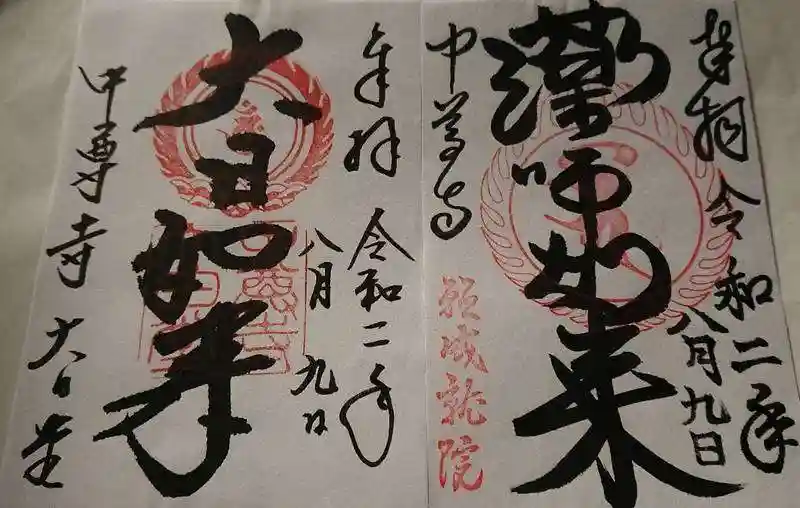 奉拝 令和二年
八月九日
薬師如来
中尊寺
願成就院
奉拝 令和二年
八月 九日
大日如来
中尊寺 大日堂